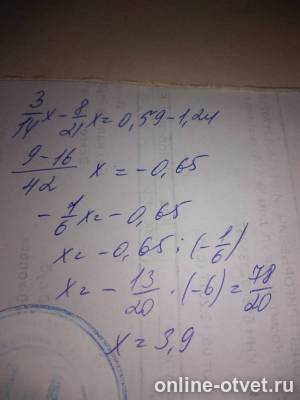 3/14 x - 8/21 x = 0,59 - 1,24
(9-16)/42 x = -0,65
- 1/6 x = -0,65
x = -0,65 : (-1/6)
x = - 13/20 · (-6) = 78/20
x = 3,9
online-otvet.ru